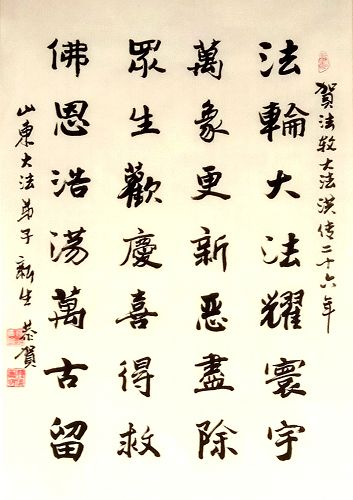 賀法轮大法洪传二十六年
法輪大法耀寰宇
萬象更新恶盡除
眾生歡慶喜得救
佛恩浩荡萬古留
山東大法弟子新生恭賀